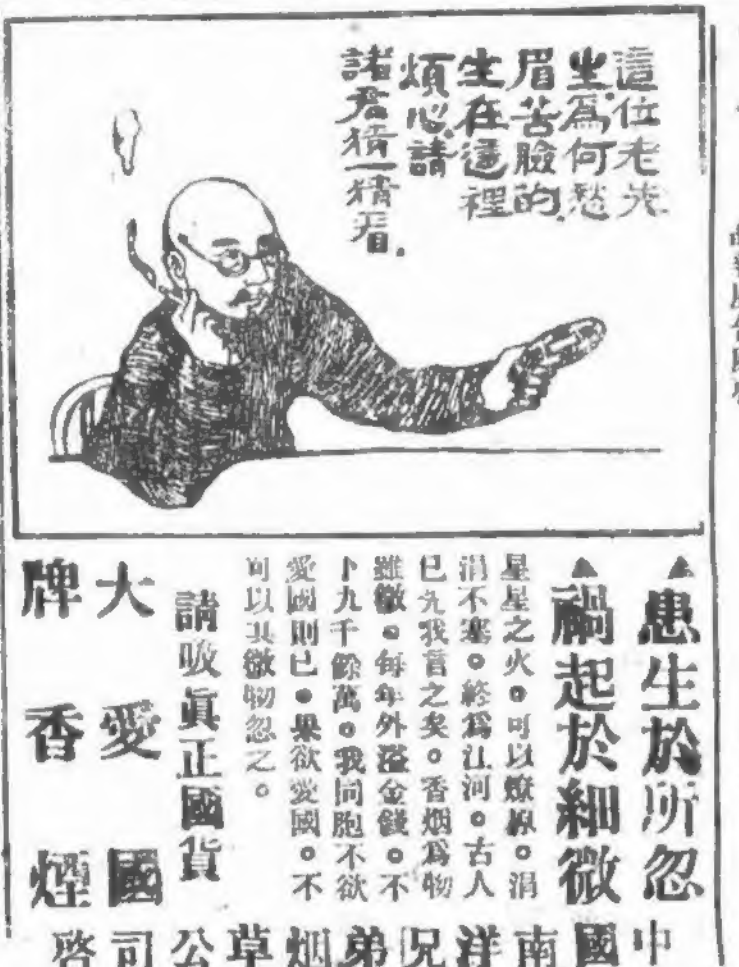 這位老先
生爲何愁
眉苦臉的.
坐在這裡
煩心請
諸君猜一猜看.
▲患生於所忽
▲禍起於細微
星星之火。可以燎原。涓
涓不塞。終爲江河。古人
已先我言之矣。香烟爲物
雖微。每年外溢金錢。不
下九千餘萬。我同胞不欲
愛國則已。果欲愛國。不
可以其微物忽之。
請吸眞正國貨
大愛國
牌香煙
中國南洋兄弟烟草公司啓